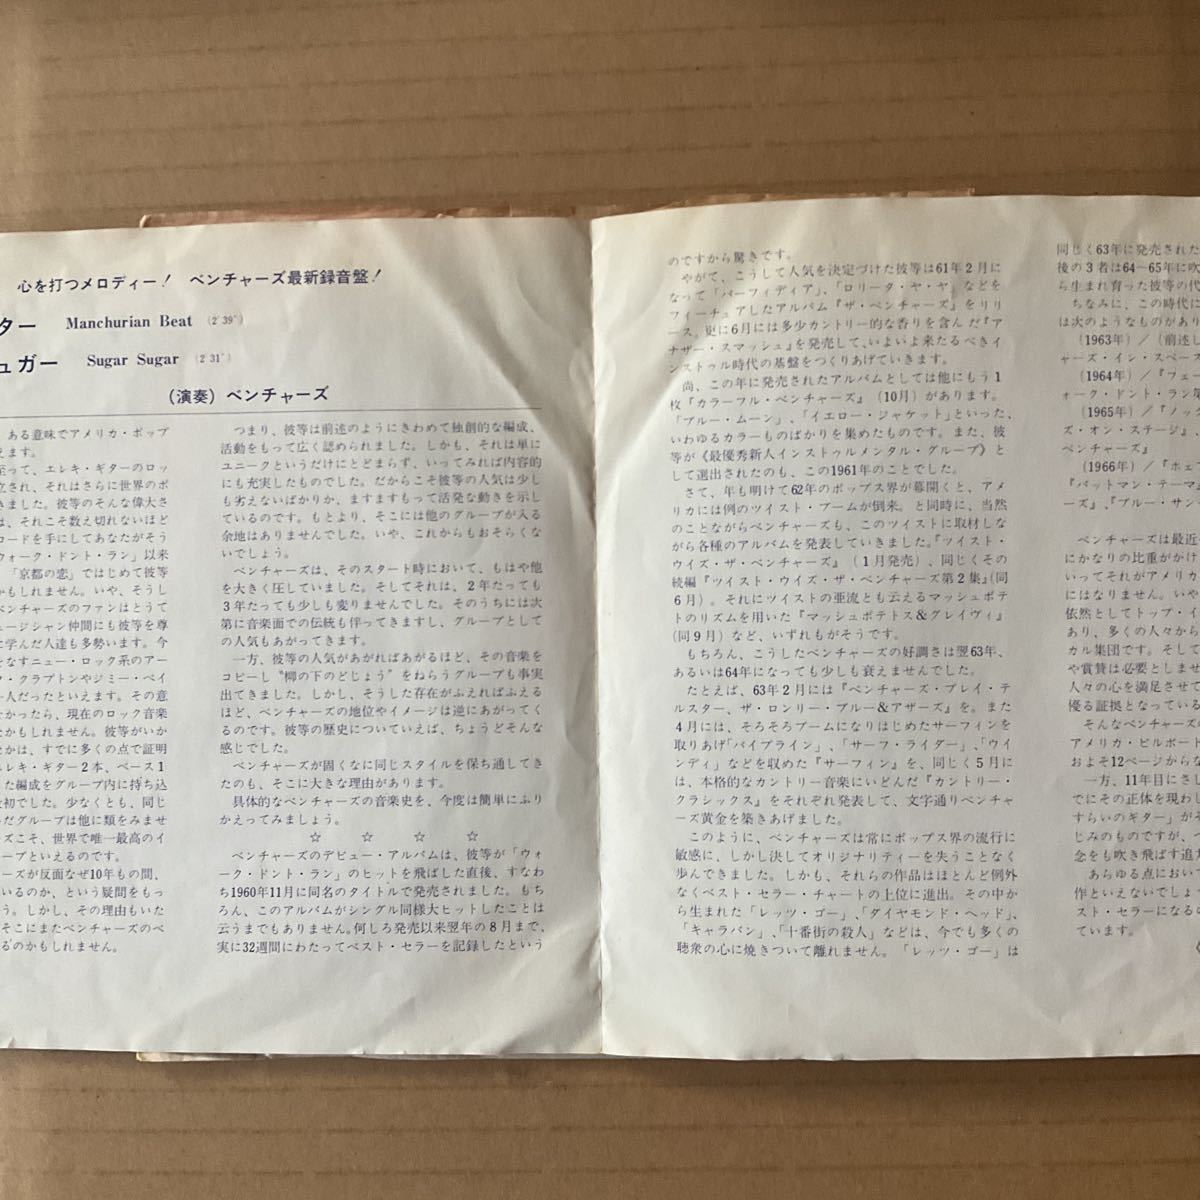 心を打つメロディー！ ベンチャーズ最新録音盤！
ター Manchurian Beat (2'39")
ュガー Sugar Sugar (2'31")
(演奏) ベンチャーズ
ある意味でアメリカ・ポップ
えます。
至って、エレキ・ギターのロッ
立され、それはさらに世界のポ
きました。彼等のそんな偉大さ
は、それこそ数え切れないほど
コードを手にしてあなたがそう
ウォーク・ドント・ラン」以来
「京都の恋」ではじめて彼等
かもしれません。いや、そうし
ベンチャーズのファンはとうて
ュージシャン仲間にも彼等を尊
に学んだ人達も多勢います。今
をなすニュー・ロック系のアー
ク・クラプトンやジミー・ペイ
一人だったといえます。その意
なかったら、現在のロック音楽
なかもしれません。彼等がいか
なかは、すでに多くの点で証明
エレキ・ギター2本、ベース1
た編成をグループ内に持ち込
最初でした。少なくとも、同じ
いだグループは他に類をみませ
ズこそ、世界で唯一最高のイ
ループといえるのです。
ーズが反面なぜ10年もの間、
いるのか、という疑問をもっ
う。しかし、その理由もいた
そこにまたベンチャーズのベ
るのかもしれません。
つまり、彼等は前述のようにきわめて独創的な編成、
活動をもって広く認められました。しかも、それは単に
ユニークというだけにとどまらず、いってみれば内容的
にも充実したものでした。だからこそ彼等の人気は少し
も劣えないばかりか、ますますもって活発な動きを示し
ているのです。もとより、そこには他のグループが入る
余地はありませんでした。いや、これからもおそらくな
いでしょう。
ベンチャーズは、そのスタート時において、もはや他
を大きく圧していました。そしてそれは、2年たっても
3年たっても少しも変りませんでした。そのうちには次
第に音楽面での伝統も伴ってきますし、グループとして
の人気もあがってきます。
一方、彼等の人気があがればあがるほど、その音楽を
コピーし〝柳の下のどじょう〟をねらうグループも事実
出てきました。しかし、そうした存在がふえればふえる
ほど、ベンチャーズの地位やイメージは逆にあがってく
るのです。彼等の歴史についていえば、ちょうどそんな
感じでした。
ベンチャーズが固くなに同じスタイルを保ち通してき
たのも、そこに大きな理由があります。
具体的なベンチャーズの音楽史を、今度は簡単にふり
かえってみましょう。
☆ ☆ ☆ ☆
ベンチャーズのデビュー・アルバムは、彼等が「ウォ
ーク・ドント・ラン」のヒットを飛ばした直後、すなわ
ち1960年11月に同名のタイトルで発売されました。もち
ろん、このアルバムがシングル同様大ヒットしたことは
云うまでもありません。何しろ発売以来翌年の8月まで、
実に32週間にわたってベスト・セラーを記録したという
のですから驚きです。
やがて、こうして人気を決定づけた彼等は61年2月に
なって「パーフィディア」、「ロリータ・ヤ・ヤ」などを
フィーチュアしたアルバム『ザ・ベンチャーズ』をリリ
ース。更に6月には多少カントリー的な香りを含んだ『ア
ナザー・スマッシュ』を発売して、いよいよ来たるべきイ
ンストゥル時代の基盤をつくりあげていきます。
尚、この年に発売されたアルバムとしては他にもう1
枚『カラーフル・ベンチャーズ』(10月)があります。
「ブルー・ムーン」、「イエロー・ジャケット」といった、
いわゆるカラーものばかりを集めたものです。また、彼
等が《最優秀新人インストゥルメンタル・グループ》と
して選出されたのも、この1961年のことでした。
さて、年も明けて62年のポップス界が幕開くと、アメ
リカには例のツイスト・ブームが到来。と同時に、当然
のことながらベンチャーズも、このツイストに取材しな
がら各種のアルバムを発表していきました。『ツイスト・
ウイズ・ザ・ベンチャーズ』(1月発売)、同じくその
続編『ツイスト・ウイズ・ザ・ベンチャーズ第2集』(同
6月)。それにツイストの亜流とも云えるマッシュポテ
トのリズムを用いた『マッシュポテトス＆グレイヴィ』
(同9月)など、いずれもがそうです。
もちろん、こうしたベンチャーズの好調さは翌63年、
あるいは64年になっても少しも衰えませんでした。
たとえば、63年2月には『ベンチャーズ・プレイ・テ
ルスター、ザ・ロンリー・ブルー＆アザーズ』を。また
4月には、そろそろブームになりはじめたサーフィンを
取りあげ「パイプライン」、「サーフ・ライダー」、「ウイ
ンディ」などを収めた『サーフィン』を、同じく5月に
は、本格的なカントリー音楽にいどんだ『カントリー・
クラシックス』をそれぞれ発表して、文字通りベンチャ
ーズ黄金を築きあげました。
このように、ベンチャーズは常にポップス界の流行に
敏感に、しかし決してオリジナリティーを失うことなく
歩んできました。しかも、それらの作品はほとんど例外
なくベスト・セラー・チャートの上位に進出。その中か
ら生まれた「レッツ・ゴー」、「ダイヤモンド・ヘッド」、
「キャラバン」、「十番街の殺人」などは、今でも多くの
聴衆の心に焼きついて離れません。「レッツ・ゴー」は
同じく63年に発売された
後の3者は64〜65年に吹
ら生まれ育った彼等の代
ちなみに、この時代に
は次のようなものがあり
(1963年)/(前述し
ャーズ・イン・スペース
(1964年)/『フェー
ォーク・ドント・ラン第
(1965年)/『ノック
ズ・オン・ステージ』、
ベンチャーズ』
(1966年)/『ホェア
『バットマン・テーマ
ーズ』、『ブルー・サン
ベンチャーズは最近
にかなりの比重がかけ
いってそれがアメリカ
にはなりません。いや
依然としてトップ・イ
あり、多くの人々から
カル集団です。そして
や賞賛は必要としませ
人々の心を満足させて
優る証拠となっている
そんなベンチャーズの
アメリカ・ビルボード
およそ12ページからな
一方、11年目にさし
でにその正体を現わし
すらいのギター」がそ
じみのものですが、
念をも吹き飛ばす追力
あらゆる点において
作といえないでしょ
スト・セラーになるの
ています。